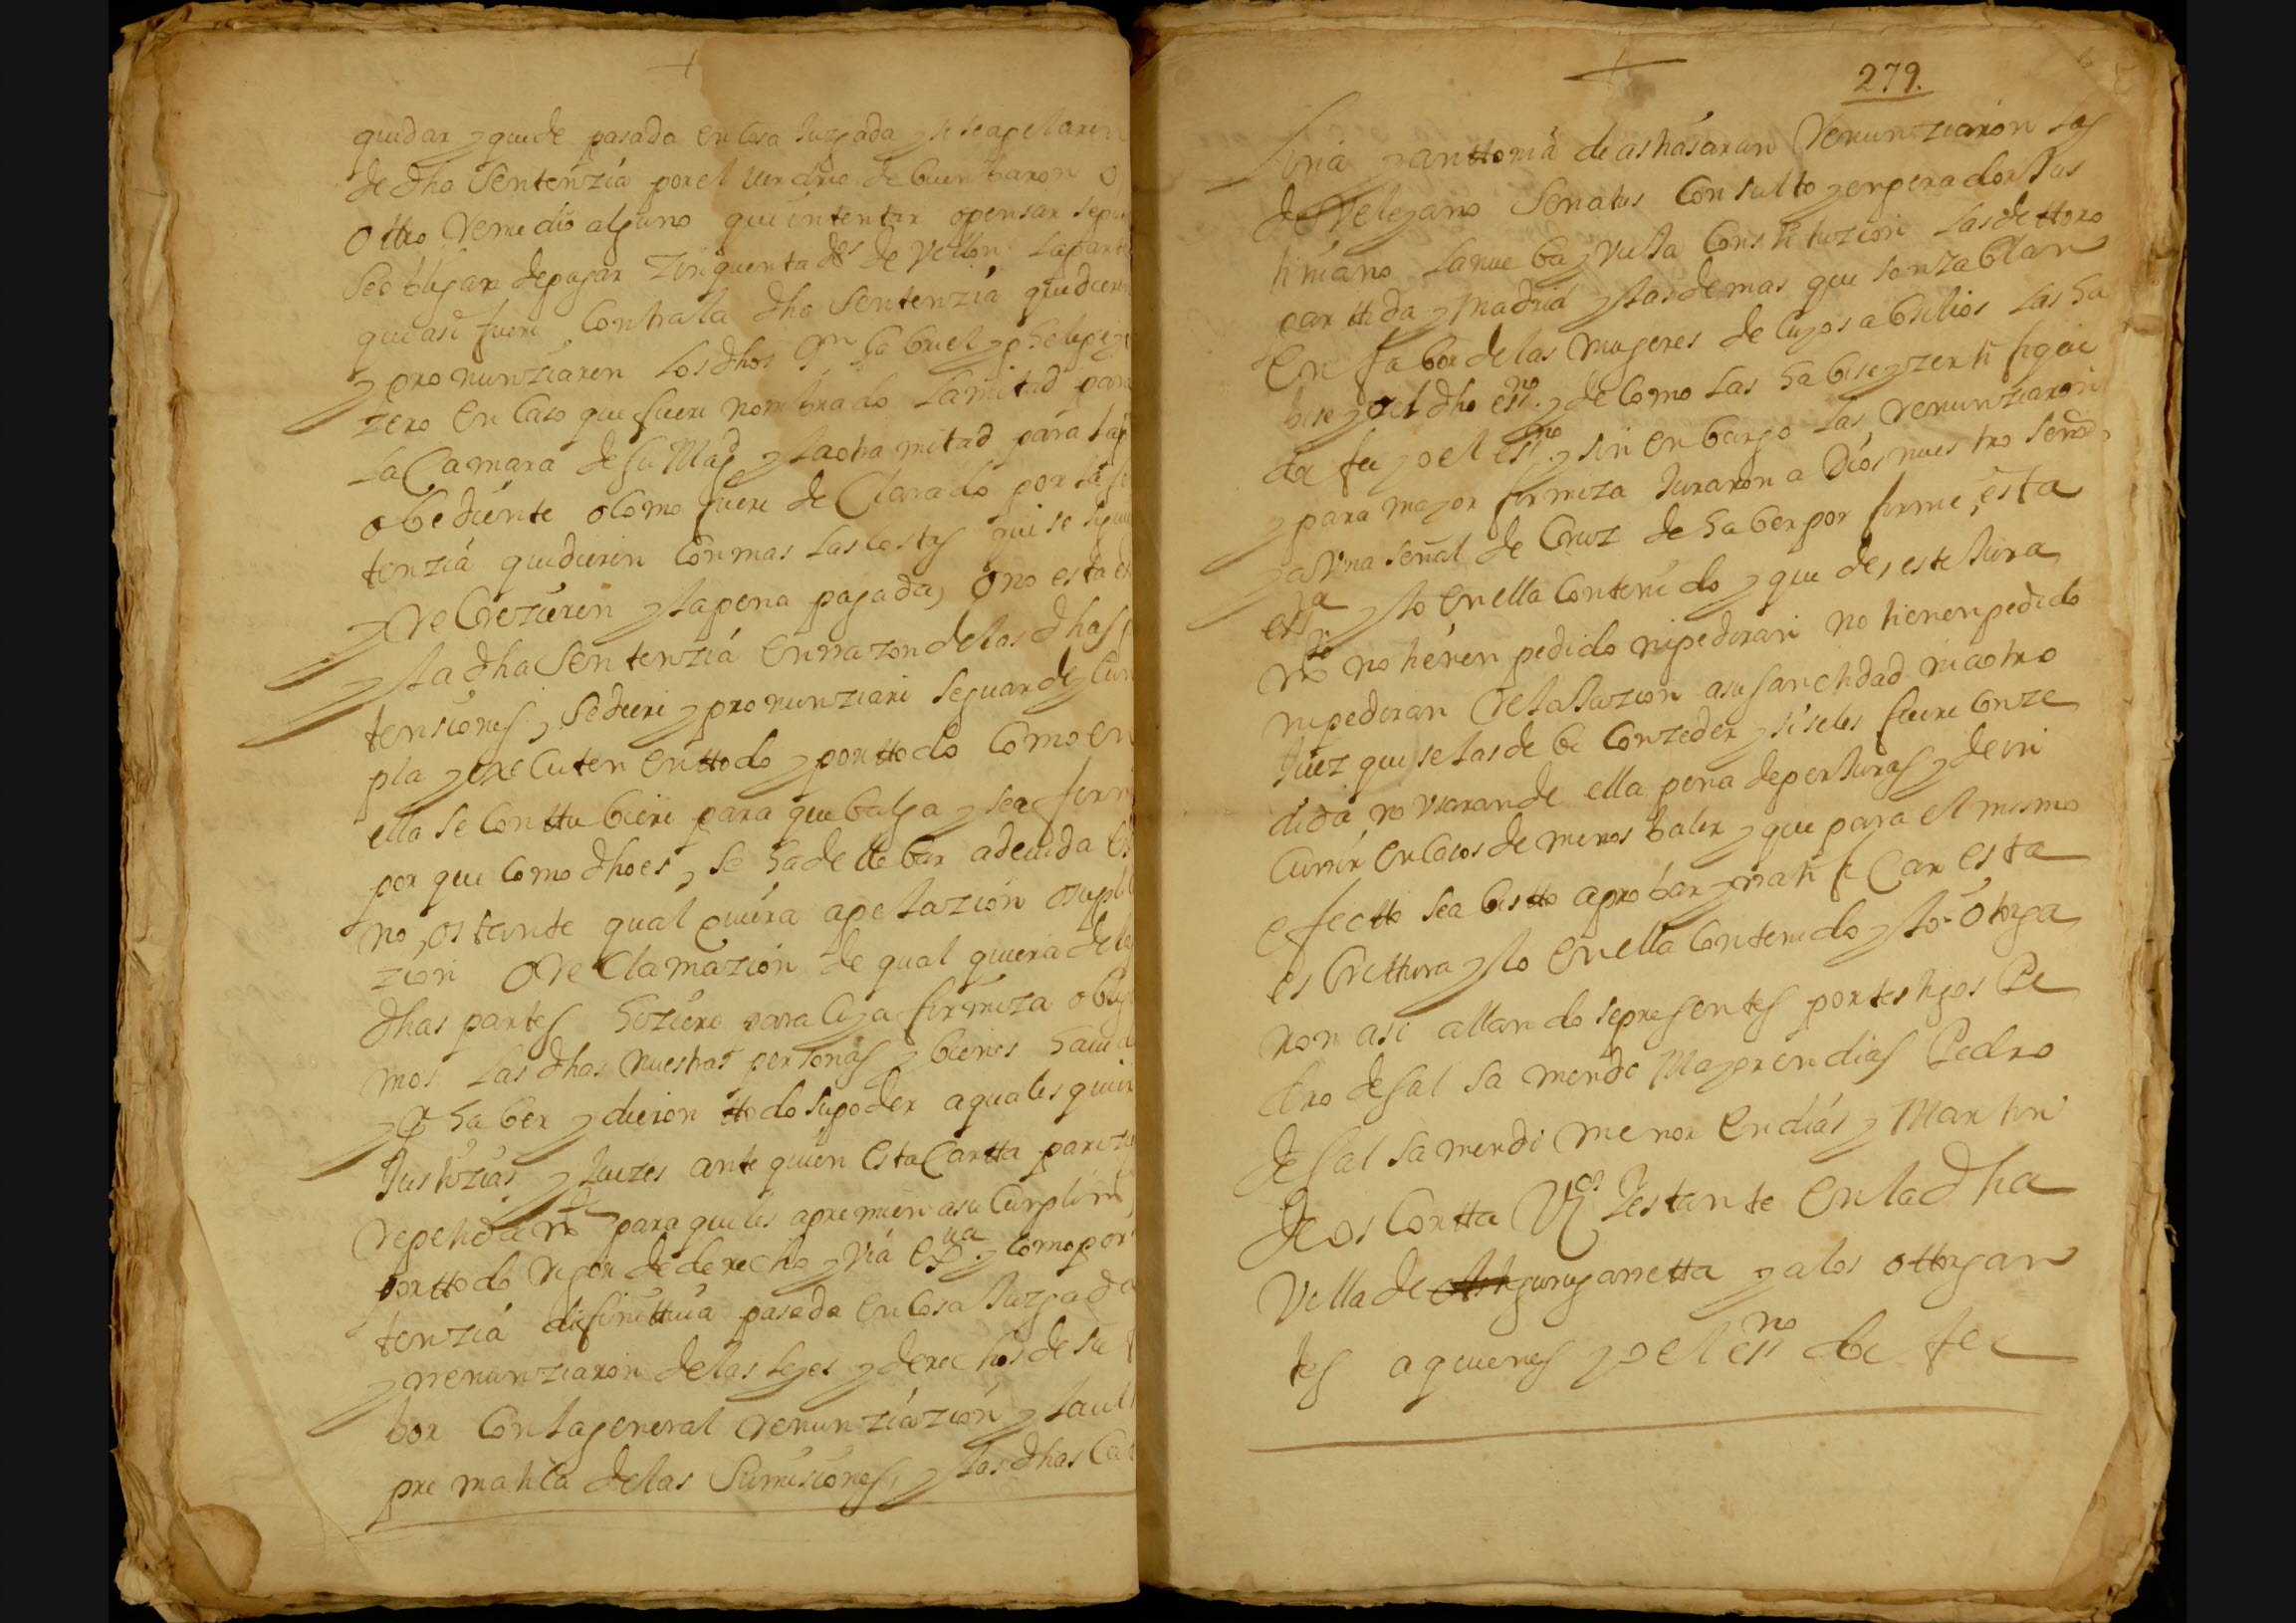 quedar y quede pasada en Cosa Juzgada y si se apelaren
de dha Sentenzia por el de buen baron o
ottro Remedio alguno que intentar o pensar
se obligan de pagar Zinquenta ds de Vellon la parte
que asi fuere Contra la dha Sentenzia que dieren
y pronunziaren los dhos Gabriel y phelipe y
zero en Caso que fuere nombrado la mitad para
La Camara de su Magd y la otra mitad para la
obediente o Como fuere de Clarado por la
tenzia que dieren Con mas las Costas que se
y Recrezieren y la pena pagada, o no esta
y la dha Sentenzia en rrazon de las dhas
tensiones, se diere y pronunziare se guarde y Cun
pla y executen en ttodo y por ttodo Como en
ella se Conttubiere para que balga y sea firm
por que como dho es, se ha de llebar a devida
no, ostante qual quiera apelazion o supli
zion o Reclamazion de qual quiera de las
dhas partes hiziere para Cuya firmeza obliga
mos las dhas nuestras personas y bienes havid
y por haber y dieron ttodo su poder a quales quier
Justizias y Juezes ante quien esta Cartta parez
repetida para que les apremien a su Cunplimto
por ttodo Rigor de derecho y via exua y Como por
tenzia difinittiua pasada en Cosa Juzgada
y rrenunziaron de las leyes y derechos de su
bor Con la general renunziazion y la
prematica de las Sumisiones, y las dhas Ca
279.
y anttonia de renunziaron las
de Velezano Senatus Consulto y enperador Jus
tiniano la nueba y Vulla Constituzion las de ttoro
parttida y Madrid y las demas que son y ablan
En fabor de las mugeres de Cuyos abxilios las ha
bise yo el dho essno y de Como las habise y zertifique
doi fee yo el essno y sin enbargo las renunziaron
y para mayor firmeza Juraron a Dios nuestro Senor,
y a Vna señal de Cruz de haber por firme, esta
essa y lo en ella Contenido y que de, este Jura
mto no tienen pedido ni pediran no tienen pedido
ni pediran relaxazion a su santidad ni a otro
Juez que se las debe Conzeder y si se les fuere Conze
dida no vsaran de ella pena de perjuras y de in
Currir en Casos de menos baler y que para el mismo
efectto sea bistto aprobar y rratificar esta
escrittura y lo en ella Contenido y lo otorga
ron asi allandose presentes por testigos Pe
dro de salsamendi Mayor en dias Pedro
de salsamendi menor en dias y Martin
de os Cortta Vos y estante en la dha
Villa de y a los ottorgan
tes a quienes yo el essno doi fee